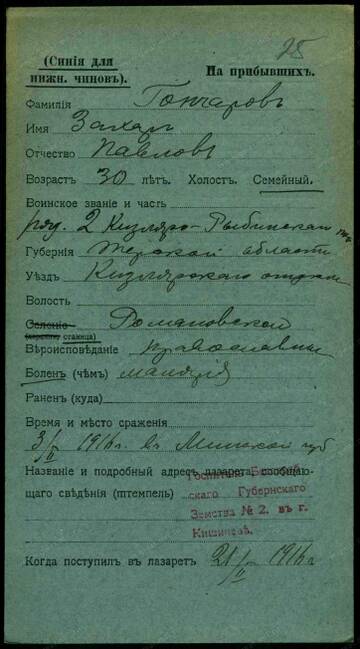 25
(Синія для
нижн. чиновъ).
На прибывшихъ.
Фамилія Гончаровъ
Имя Захаръ
Отчество Павловъ
Возрастъ 30 лѣтъ. Холост. Семейный.
Воинское званіе и часть
ряд. 2 Кизляро-
Губернія Терской области
Уѣздъ Кизлярскаго отдѣла
Волость
Селеніе Романовской
станица)
Вѣроисповѣданіе православный
Боленъ (чѣмъ) малярія
Раненъ (куда)
Время и мѣсто сраженія
1916 г. въ Минской губ
Названіе и подробный адресъ лазарета, сообщаю-
щаго свѣдѣнія (штемпель)
Госпиталь
скаго Губернскаго
Земства № 2. въ г.
Кишиневѣ.
Когда поступилъ въ лазаретъ 21/II 1916 г